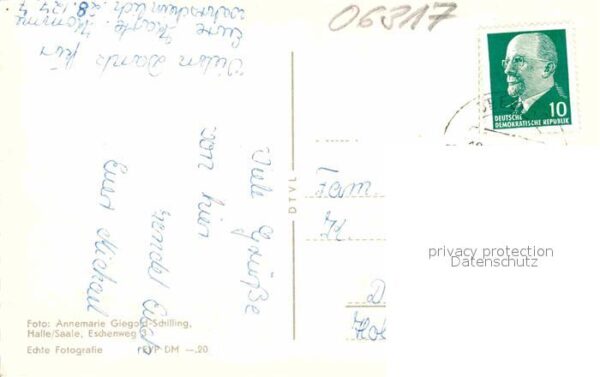 06317
Vielen Dank für
Eure Karte. Komme
wahrscheinlich 28.12.
Viele Grüße
von hier
sendet Euch
Euer Michael
DEUTSCHE
DEMOKRATISCHE REPUBLIK
10
DTVL
Fam.
K.
D
privacy protection
Datenschutz
Foto: Annemarie Giegold-Schilling,
Halle/Saale, Eschenweg
Echte Fotografie EVP DM —.20